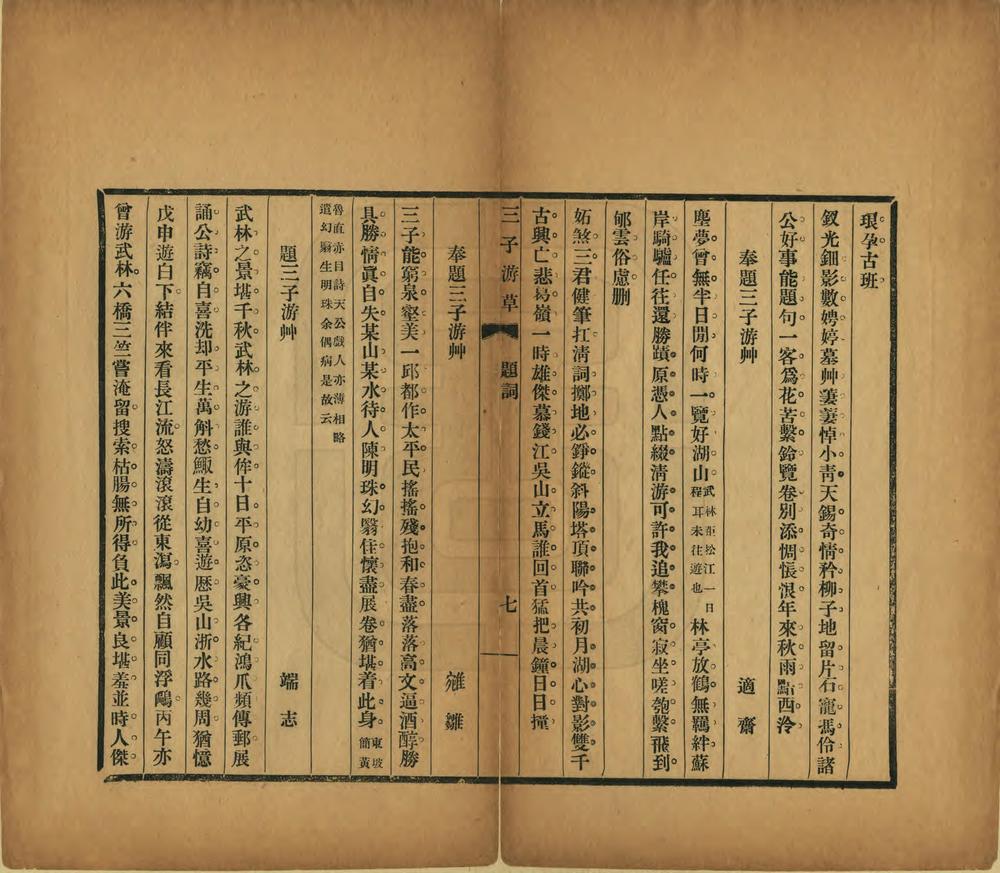 琅孕古班
釵光鈿影數娉婷墓艸萋萋悼小靑天錫奇情矜柳子地留片石寵馮伶諸
公好事能題句一客爲花苦繫鈴覽卷別添惆悵恨年來秋雨黯西泠
奉題三子游艸
適齋
塵夢曾無半日閒何時一覽好湖山武林距松江一日程耳未往遊也林亭放鶴無羈絆蘇
岸騎驢任往還勝蹟原憑人點綴淸游可許我追攀槐窗寂坐嗟匏繫飛到
郇雲俗慮刪
妬煞三君健筆扛淸詞擲地必錚鏦斜陽塔頂聯吟共初月湖心對影雙千
古興亡悲葛嶺一時雄傑慕錢江吳山立馬誰回首猛把晨鐘日日撞
三子游草
題詞
七
奉題三子游艸
雛
三子能窮泉壑美一邱都作太平民搖搖殘抱和春盡落落高文逼酒醇勝
具勝情眞自失某山某水待人陳明珠幻翳佳懷盡展卷猶堪着此身東坡簡黃
魯直亦目詩天公戲人亦薄相略
遣幻翳生明珠余偶病是故云
題三子游艸
端志
武林之景堪千秋武林之游誰與侔十日平原恣豪興各紀鴻爪頻傳郵展
誦公詩竊自喜洗却平生萬斛愁鯫生自幼喜遊歷吳山浙水路幾周猶憶
戊申遊白下結伴來看長江流怒濤滾滾從東瀉飄然自顧同浮鷗丙午亦
曾游武林六橋三竺嘗淹留搜索枯腸無所得負此美景良堪羞並時人傑